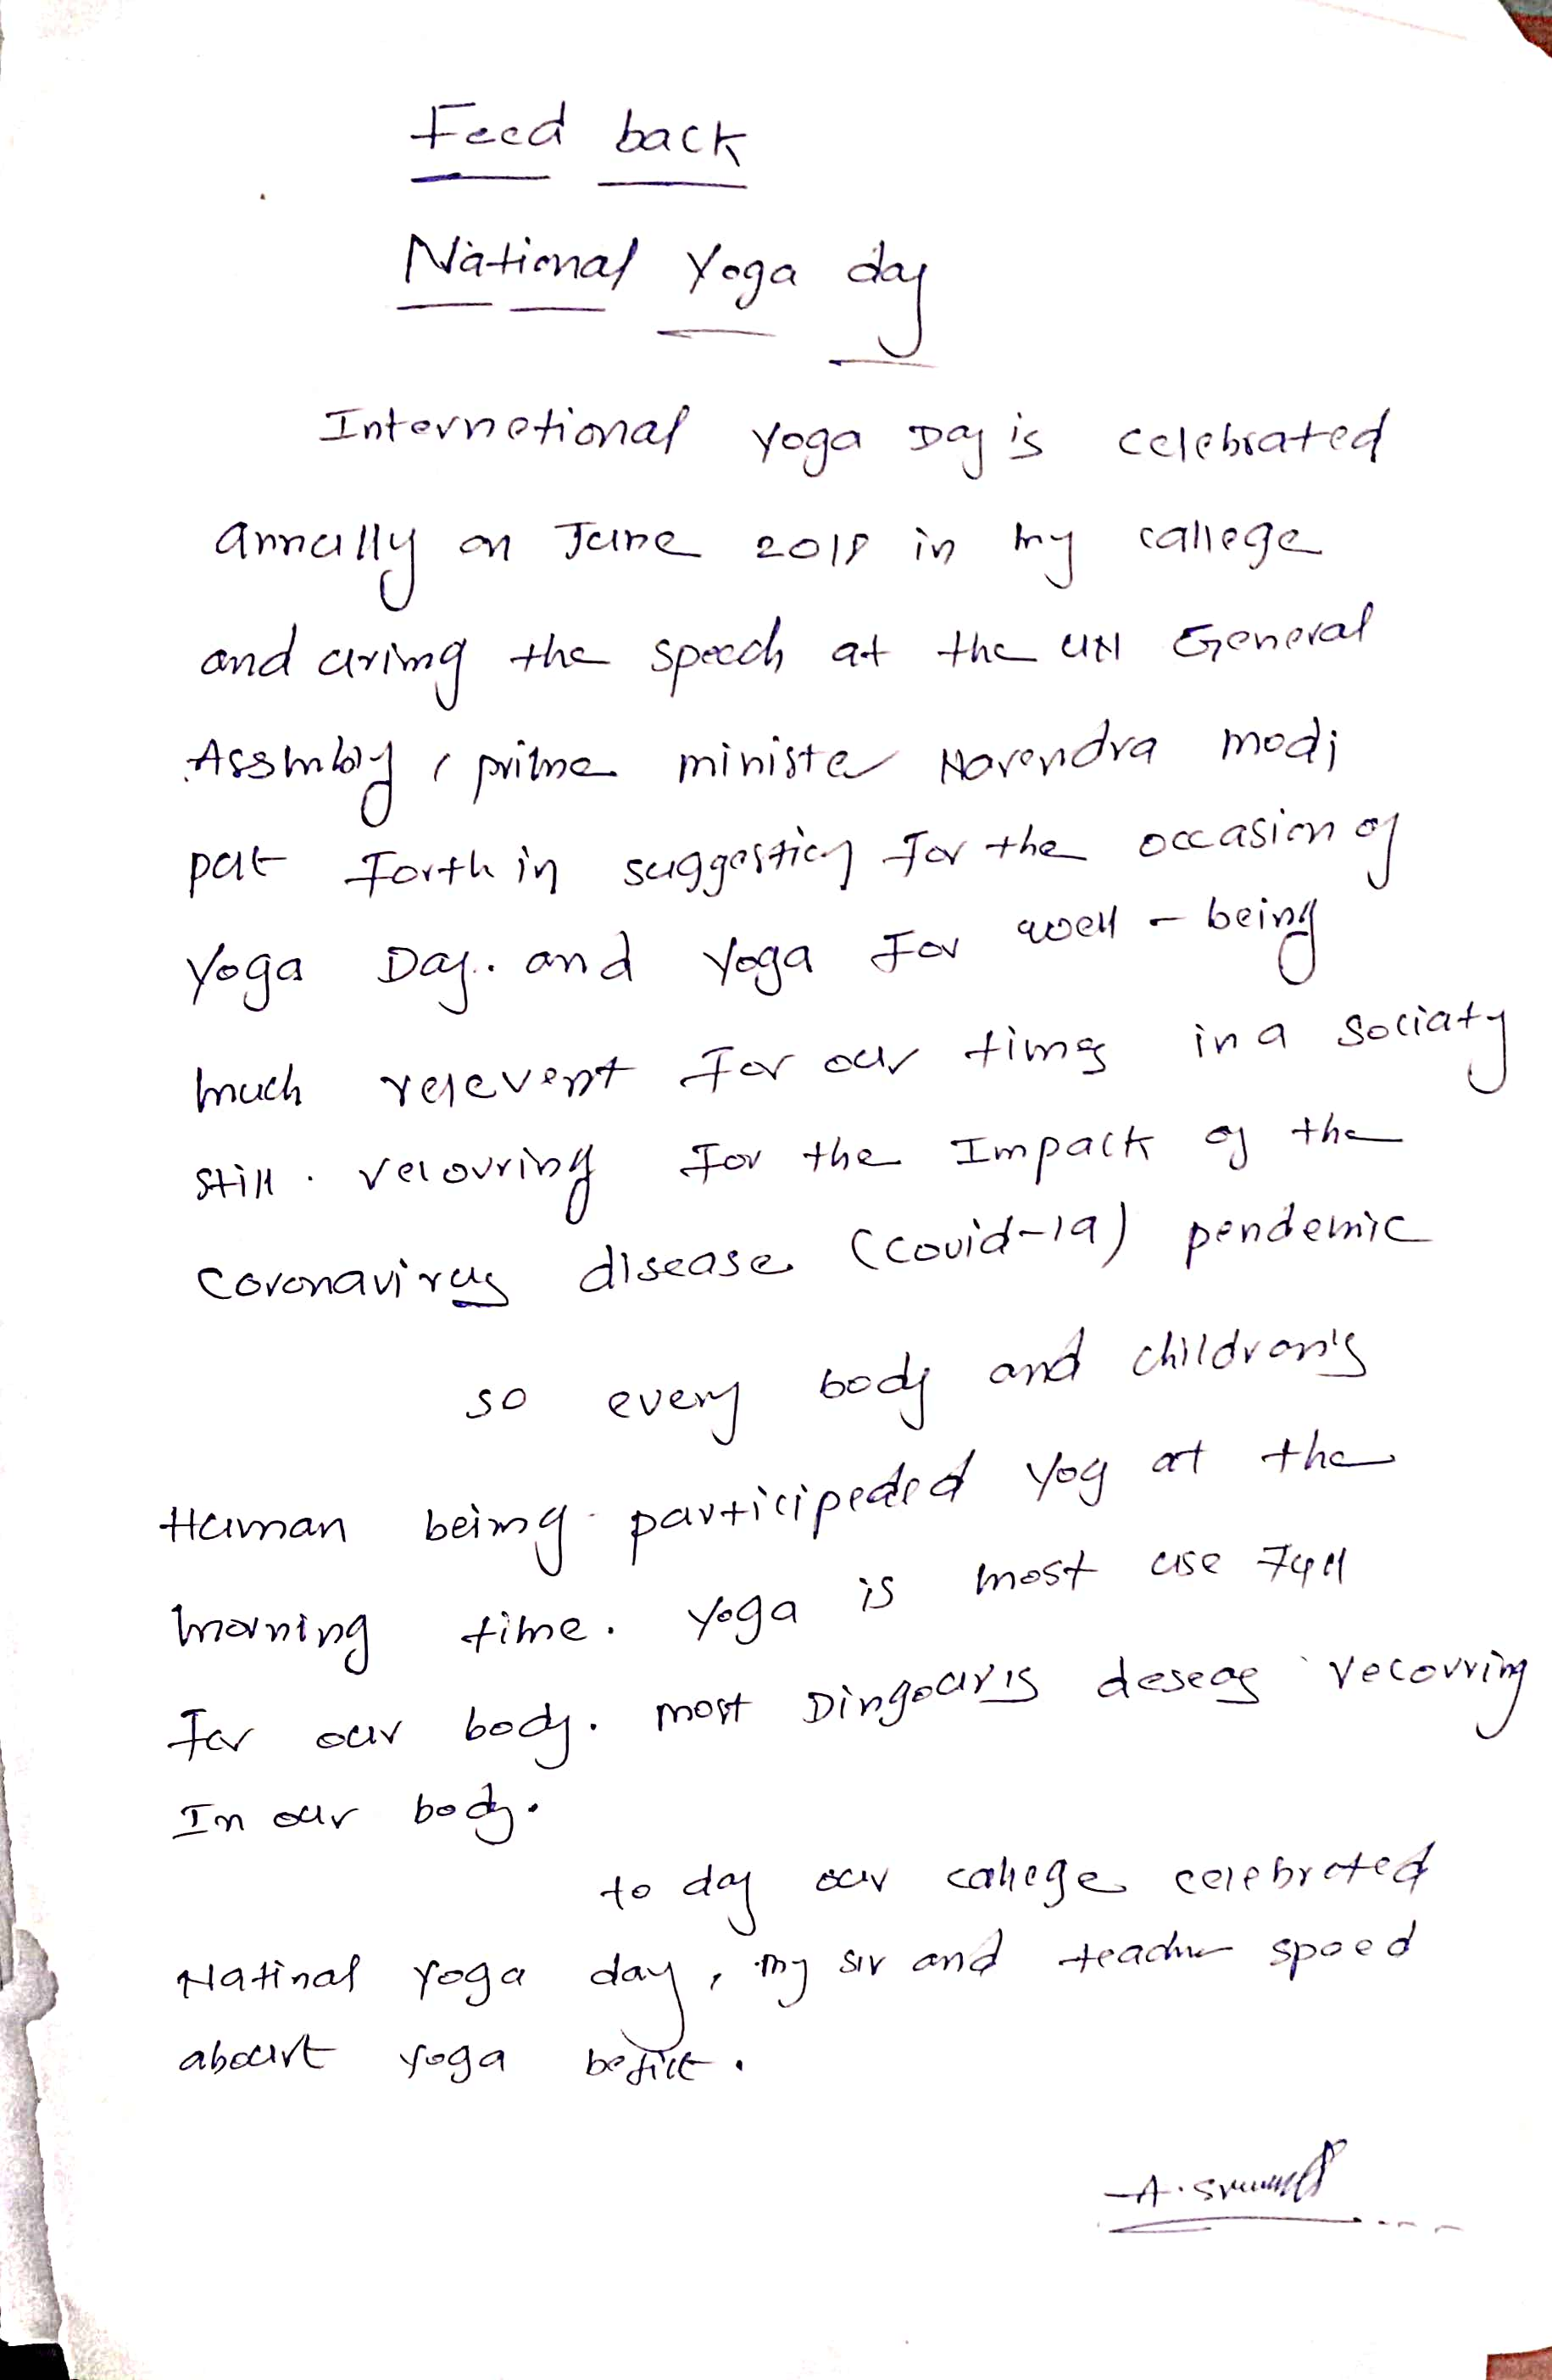 Feed back
National Yoga day
International Yoga Day is celebrated
annully on June 2018 in my callege
and uring the speech at the UN General
Assmbly, prime ministe Narendra modi
put Forth in suggestion For the occasion of
Yoga Day. and Yoga For well - being
much relevent For our times in a Sociaty
still. relovring For the Impack of the
Coronavirus disease (covid-19) pendemic
so every body and childron's
Human being participeded Yog at the
morning time. Yoga is most use Full
For our body. most Dingouris deseas recovring
In our body.
to day our callege celebrated
Natinal Yoga day, my sir and teacher speed
about Yoga befict.
A.